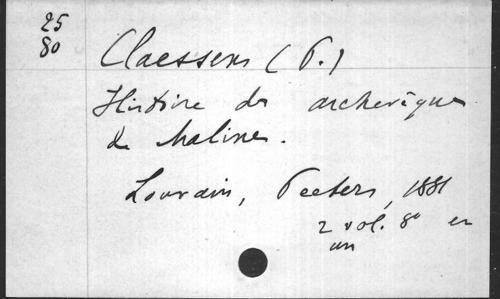 25
80
Claessens (P.)
Histoire des archevêques
de Malines.
Louvain, Peeters, 1881
2 vol. 8° en
un